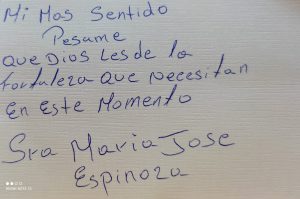 Mi Mas Sentido
Pesame
Que Dios Les de la
fortaleza que necesitan
En Este Momento
Sra Maria Jose
Espinoza